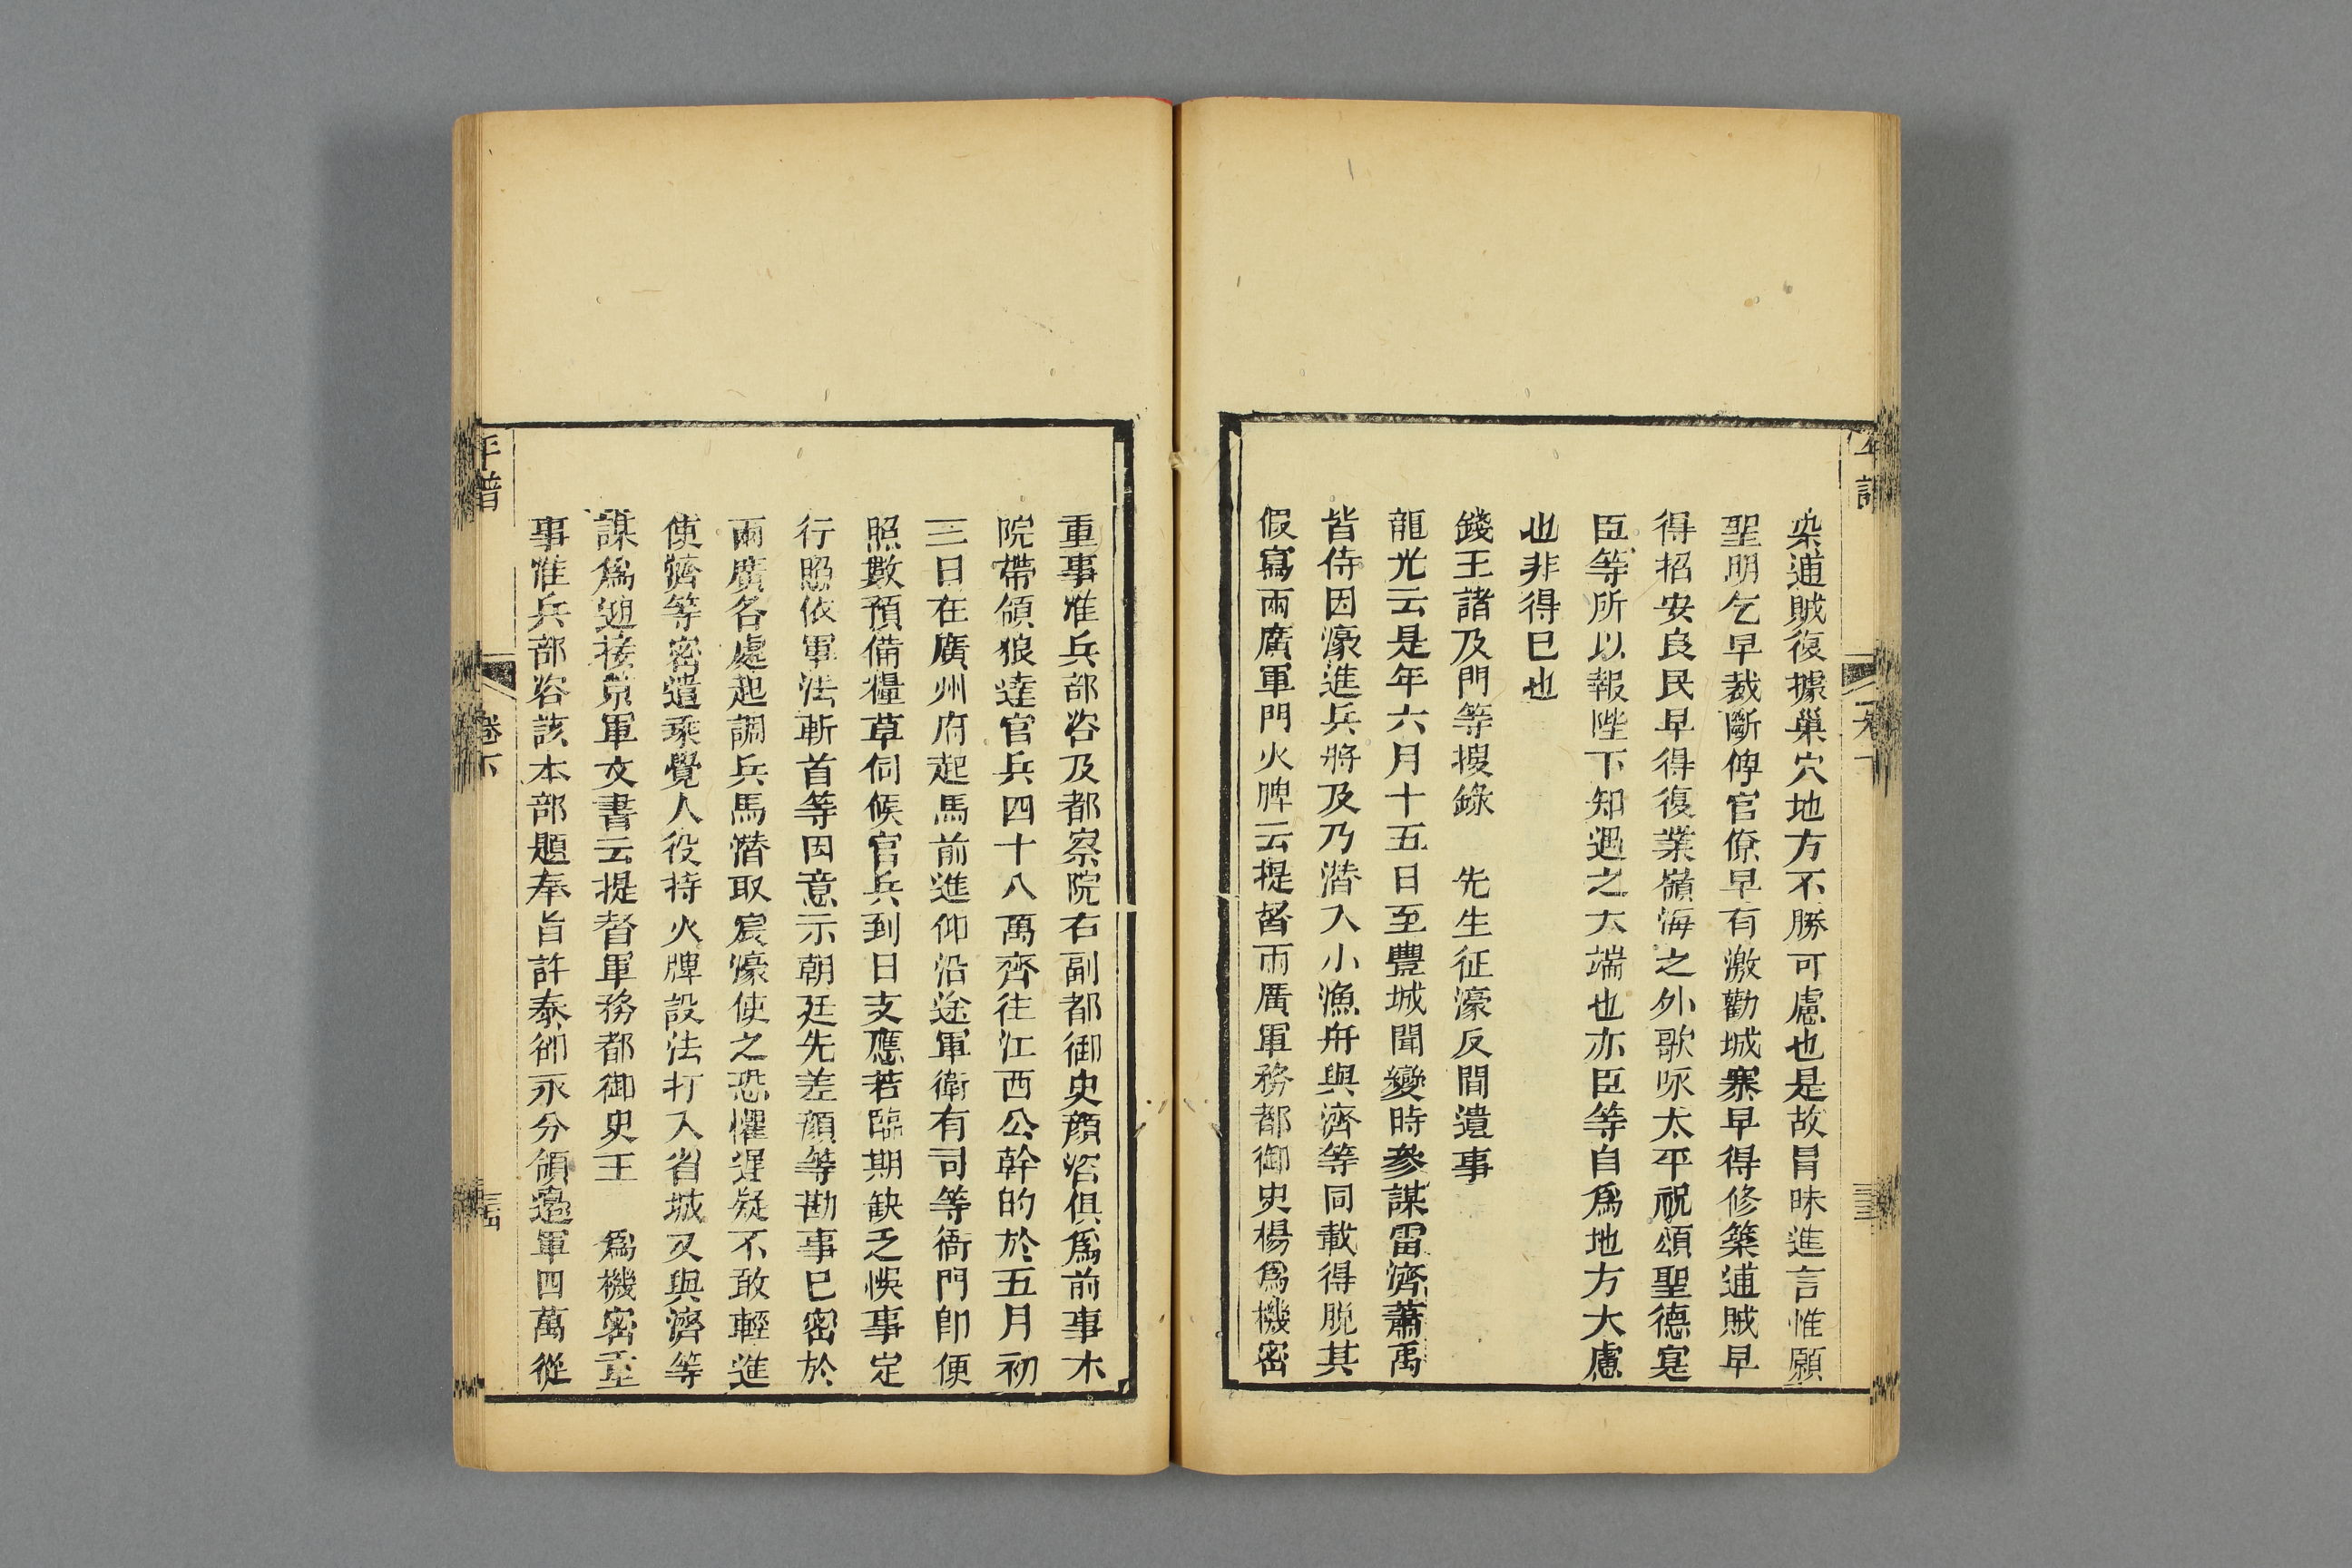 年譜 卷下 三十三
染逋賊復據巢穴地方不勝可慮也是故冐昧進言惟願
聖明乞早裁斷俾官僚早有激勸城寨早得修築逋賊早
得招安良民早得復業嶺海之外歌咏太平祝頌聖德寔
臣等所以報陛下知遇之大端也亦臣等自爲地方大慮
也非得已也
錢王諸及門等搜錄 先生征濠反間遺事
龍光云是年六月十五日至豐城聞變時參謀雷濟蕭禹
皆侍因濠進兵將及乃潛入小漁舟與濟等同載得脫其
假寫兩廣軍門火牌云提督兩廣軍務都御史楊爲機密
重事准兵部咨及都察院右副都御史顔咨俱爲前事木
院帶領狼達官兵四十八萬齊往江西公幹的於五月初
三日在廣州府起馬前進仰沿途軍衛有司等衙門即便
照數預備糧草伺候官兵到日支應若臨期缺乏悞事定
行照依軍法斬首等因意示朝廷先差顔等勘事已密於
兩廣各處起調兵馬潛取宸濠使之恐懼遲疑不敢輕進
使濟等密遣乘覺人役持火牌設法打入省城又與濟等
謀爲迎接京軍文書云提督軍務都御史王 爲機密重
事准兵部咨該本部題奉旨許泰卻永分領邊軍四萬從
年譜 卷下